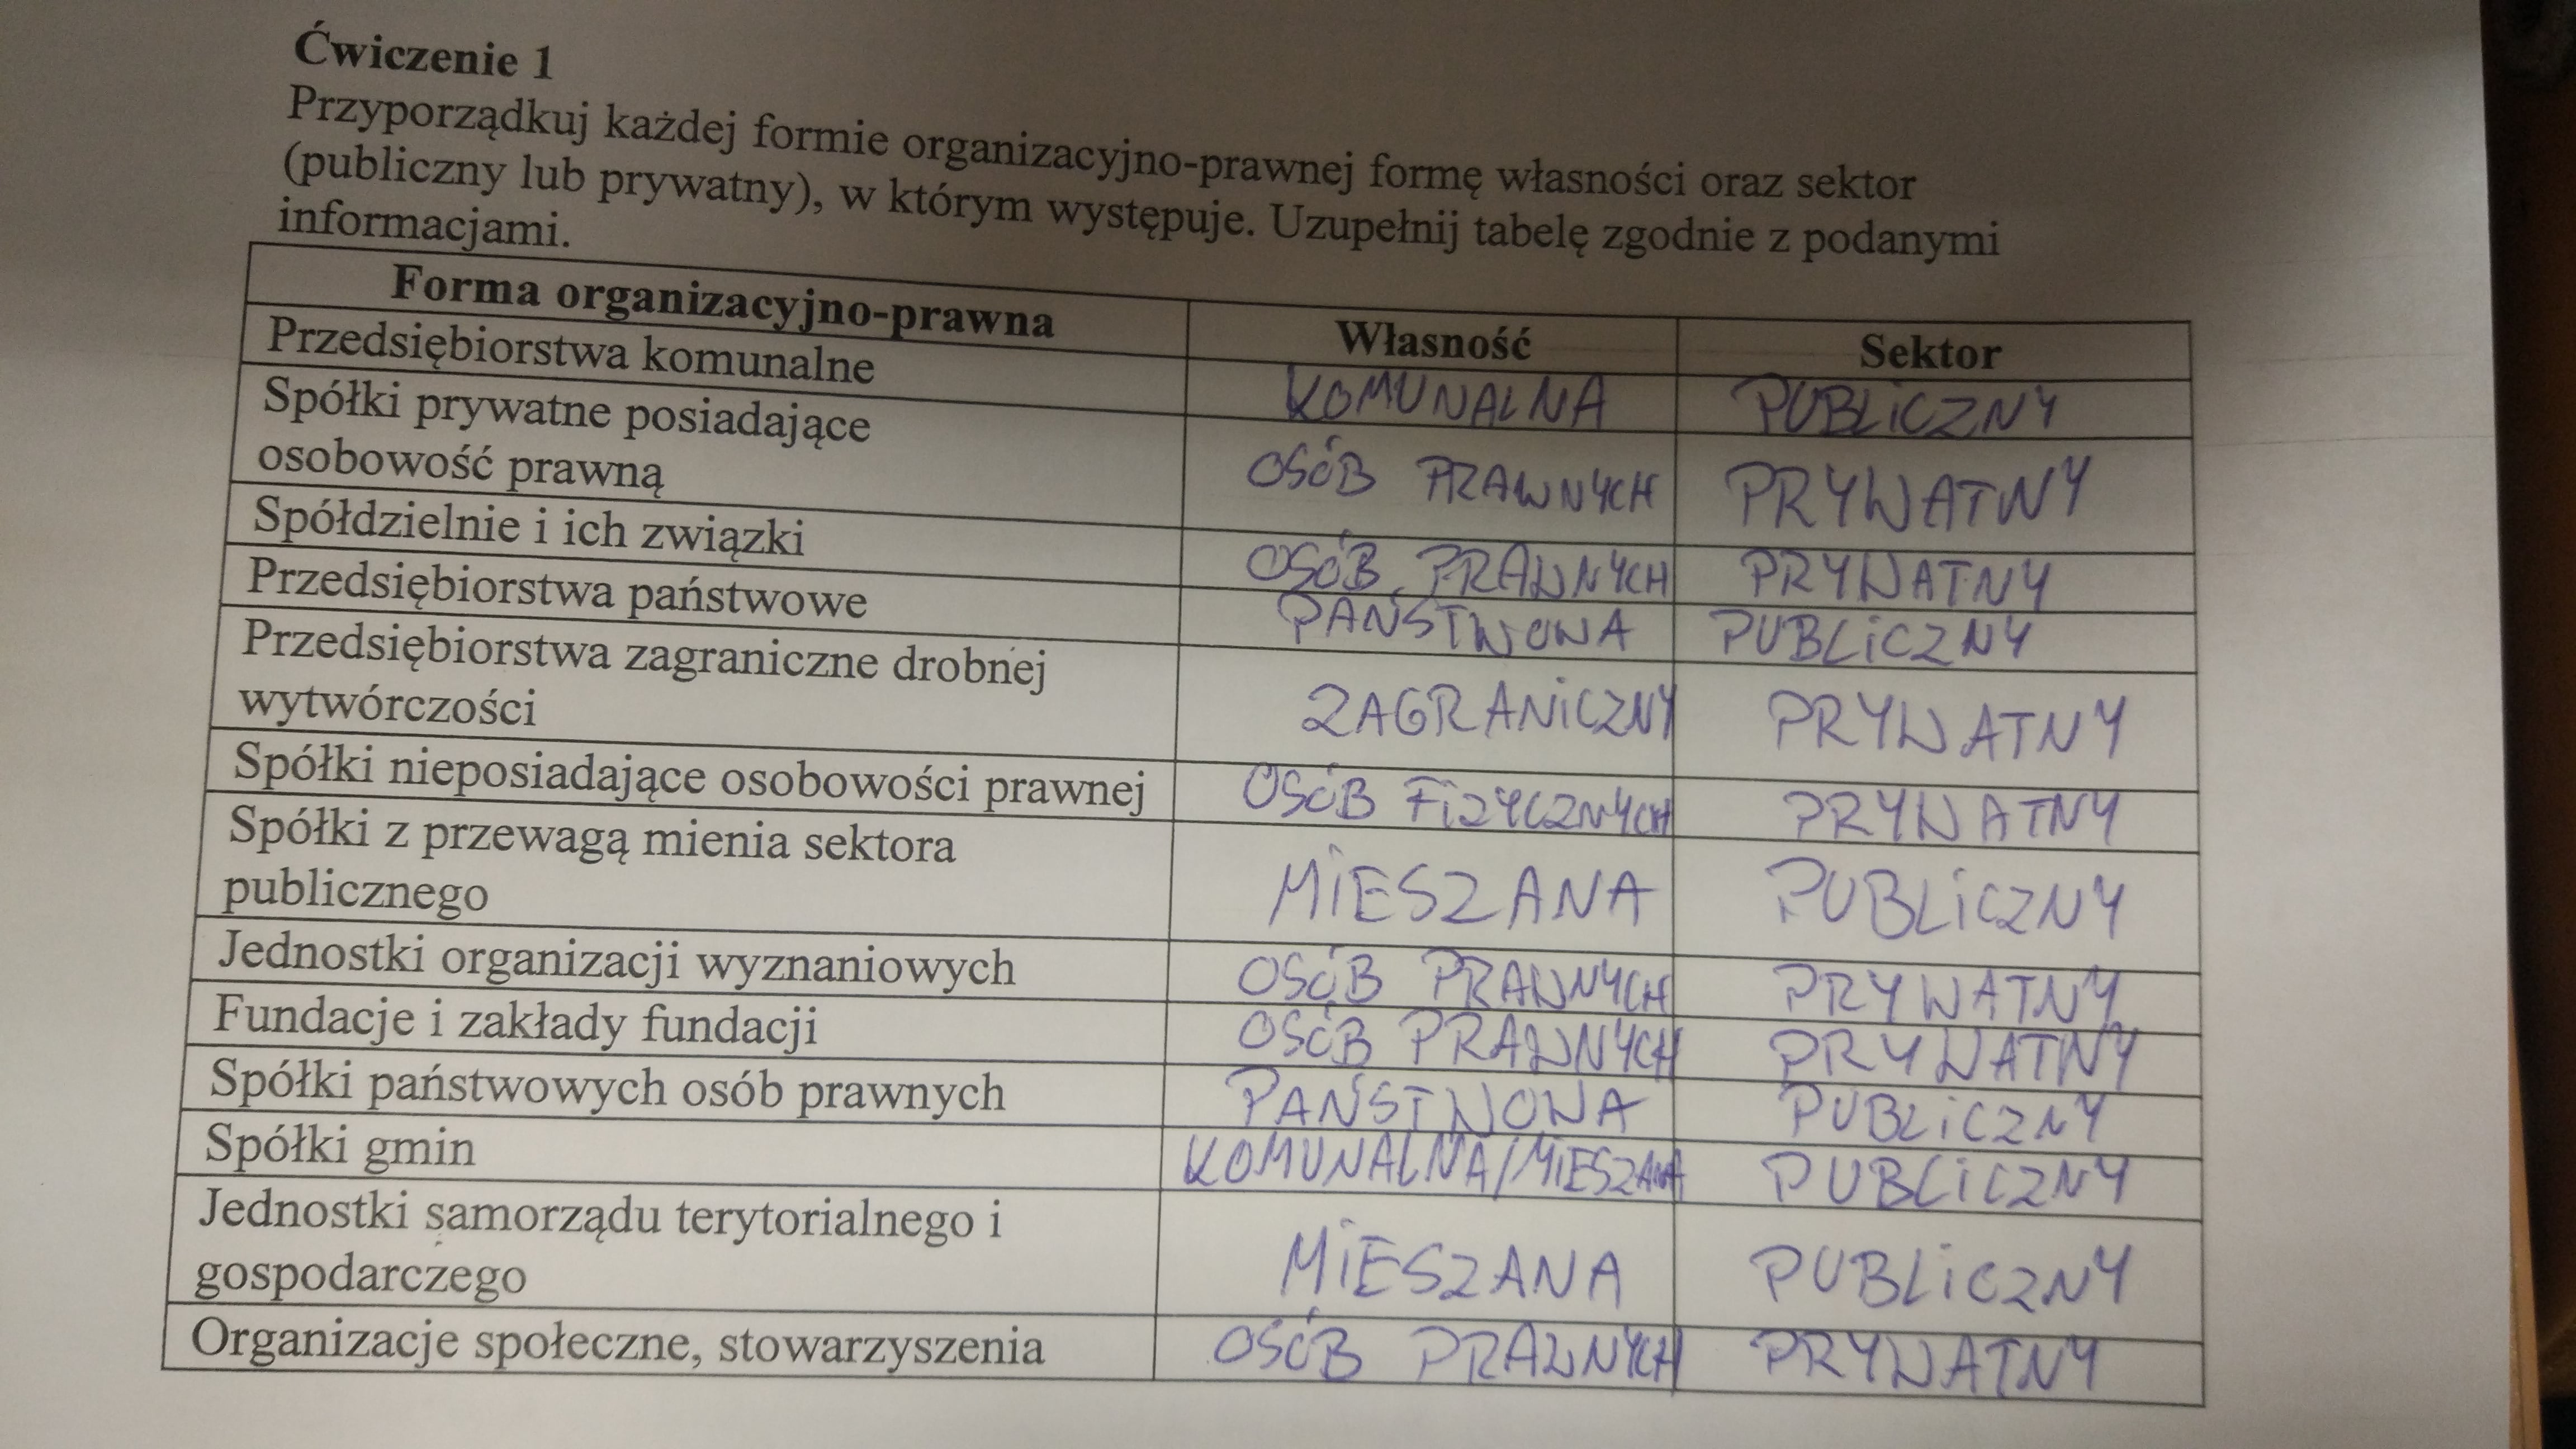 Ćwiczenie 1
Przyporządkuj każdej formie organizacyjno-prawnej formę własności oraz sektor
(publiczny lub prywatny), w którym występuje. Uzupełnij tabelę zgodnie z podanymi
informacjami.
Forma organizacyjno-prawna Własność Sektor
Przedsiębiorstwa komunalne KOMUNALNA PUBLICZNY
Spółki prywatne posiadające
osobowość prawną OSÓB PRAWNYCH PRYWATNY
Spółdzielnie i ich związki OSÓB PRAWNYCH PRYWATNY
Przedsiębiorstwa państwowe PAŃSTWOWA PUBLICZNY
Przedsiębiorstwa zagraniczne drobnej
wytwórczości ZAGRANICZNY PRYWATNY
Spółki nieposiadające osobowości prawnej OSÓB FIZYCZNYCH PRYWATNY
Spółki z przewagą mienia sektora
publicznego MIESZANA PUBLICZNY
Jednostki organizacji wyznaniowych OSÓB PRAWNYCH PRYWATNY
Fundacje i zakłady fundacji OSÓB PRAWNYCH PRYWATNY
Spółki państwowych osób prawnych PAŃSTWOWA PUBLICZNY
Spółki gmin KOMUNALNA/MIESZANA PUBLICZNY
Jednostki samorządu terytorialnego i
gospodarczego MIESZANA PUBLICZNY
Organizacje społeczne, stowarzyszenia OSÓB PRAWNYCH PRYWATNY